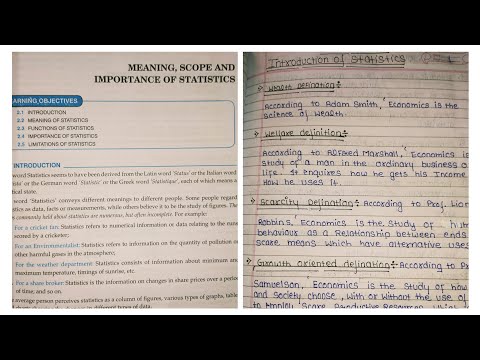 MEANING, SCOPE AND
IMPORTANCE OF STATISTICS
ARNING OBJECTIVES
2.1 INTRODUCTION
2.2 MEANING OF STATISTICS
2.3 FUNCTIONS OF STATISTICS
2.4 IMPORTANCE OF STATISTICS
2.5 LIMITATIONS OF STATISTICS
INTRODUCTION
word Statistics seems to have been derived from the Latin word 'Status' or the Italian word
or the German word 'Statistik' or the Greek word 'Statistique', each of which means a
ical state.
word 'Statistics' conveys different meanings to different people. Some people regard
tics as data, facts or measurements, while others believe it to be the study of figures. The
commonly held about statistics are numerous, but often incomplete. For example:
For a cricket fan: Statistics refers to numerical information or data relating to the runs
scored by a cricketer;
For an Environmentalist: Statistics refers to information on the quantity of pollution
other harmful gases in the atmosphere;
For the weather department: Statistics consists of information about minimum and
maximum temperature, timings of sunrise, etc.
For a share broker: Statistics is the information on changes in share prices over a period
of time; and so on.
average person perceives statistics as a column of figures, various types of graphs, table
Introduction of Statistics
Wealth defination:-
According to Adam Smith, 'Economics is the
science of Wealth.
Welfare definition:-
According to Alfred Marshall, 'Economics is
study of a man in the ordinary business o
life. It enquires how he gets his Income
How he uses it.
Scarcity Defination:- According to Prof. Lion
Robbins, Economics is the study of hum
behaviour as a Relationship between ends
scare means which have alternative uses
Growth oriented defination:- According to Pr
Samuelson, Economics is the study of how
and society choose, with or without the use of
to Employ Scare Productive Resources